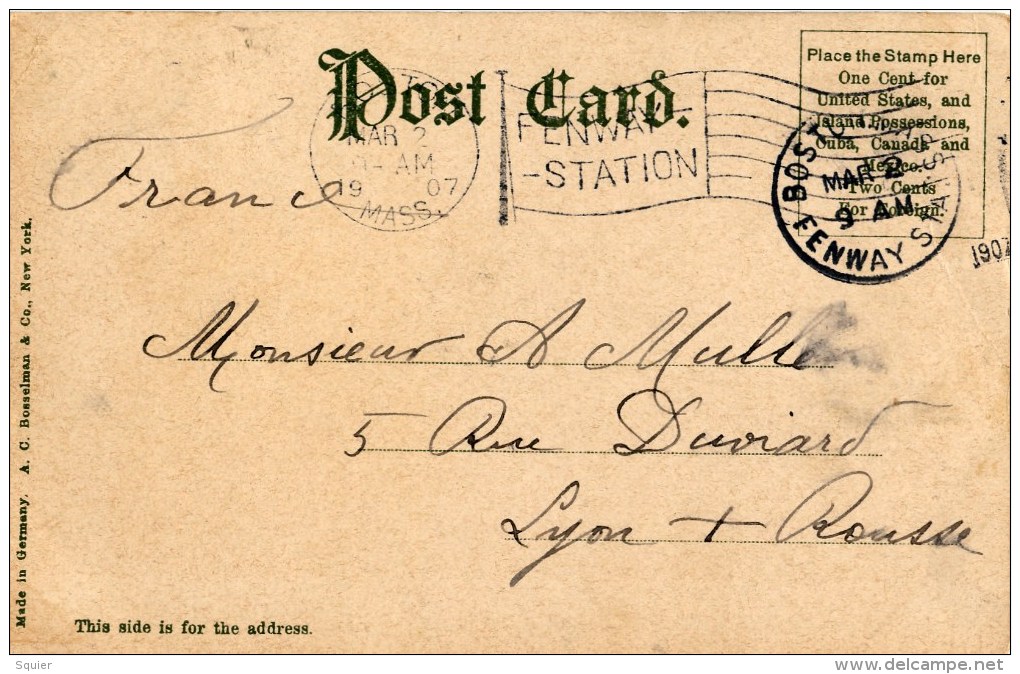 Post Card.
Place the Stamp Here
One Cent for
United States, and
Island Possessions,
Cuba, Canada and
Mexico.
Two Cents
For Foreign.
MAR 2
AM
19 07
MASS.
FENWAY
-STATION
BOSTON, MASS.
MAR 2
9 AM
FENWAY STA.
1907
France
Monsieur A
5 Rue Duviard
Lyon + Rousse
Made in Germany. A. C. Bosselman & Co., New York.
This side is for the address.
Squier
delcampe.net